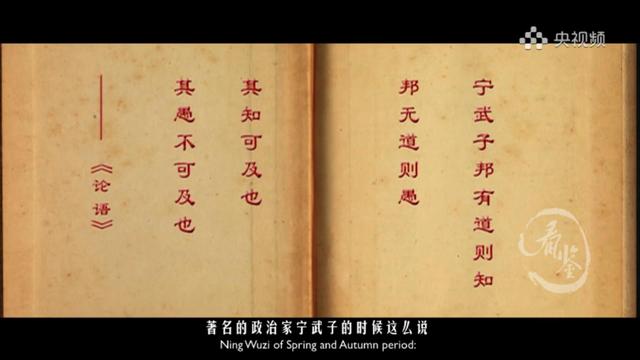 央视频
宁武子邦有道则知
邦无道则愚
其知可及也
其愚不可及也
——《论语》
看鉴
著名的政治家宁武子的时候这么说
Ning Wuzi of Spring and Autumn period: